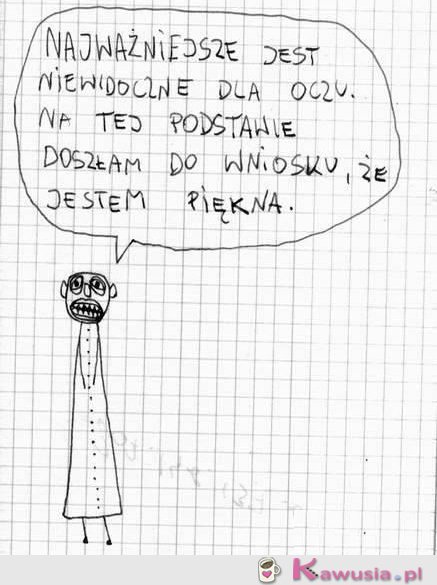 NAJWAŻNIEJSZE JEST
NIEWIDOCZNE DLA OCZU.
NA TEJ PODSTAWIE
DOSZŁAM DO WNIOSKU, ŻE
JESTEM PIĘKNA.
Kawusia.pl